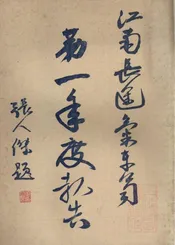 江南長途汽車公司
第一年度報告
張人傑題